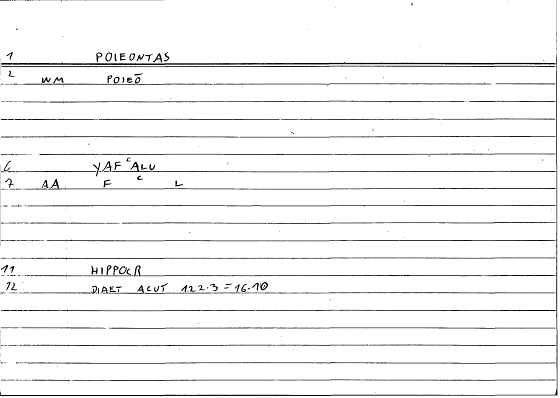 1 POIEONTAS
2 WM POIEŌ
6 YAFᶜALU
7 AA F ᶜ L
11 HIPPOCR
12 DIAET ACUT 122.3 = 16.10